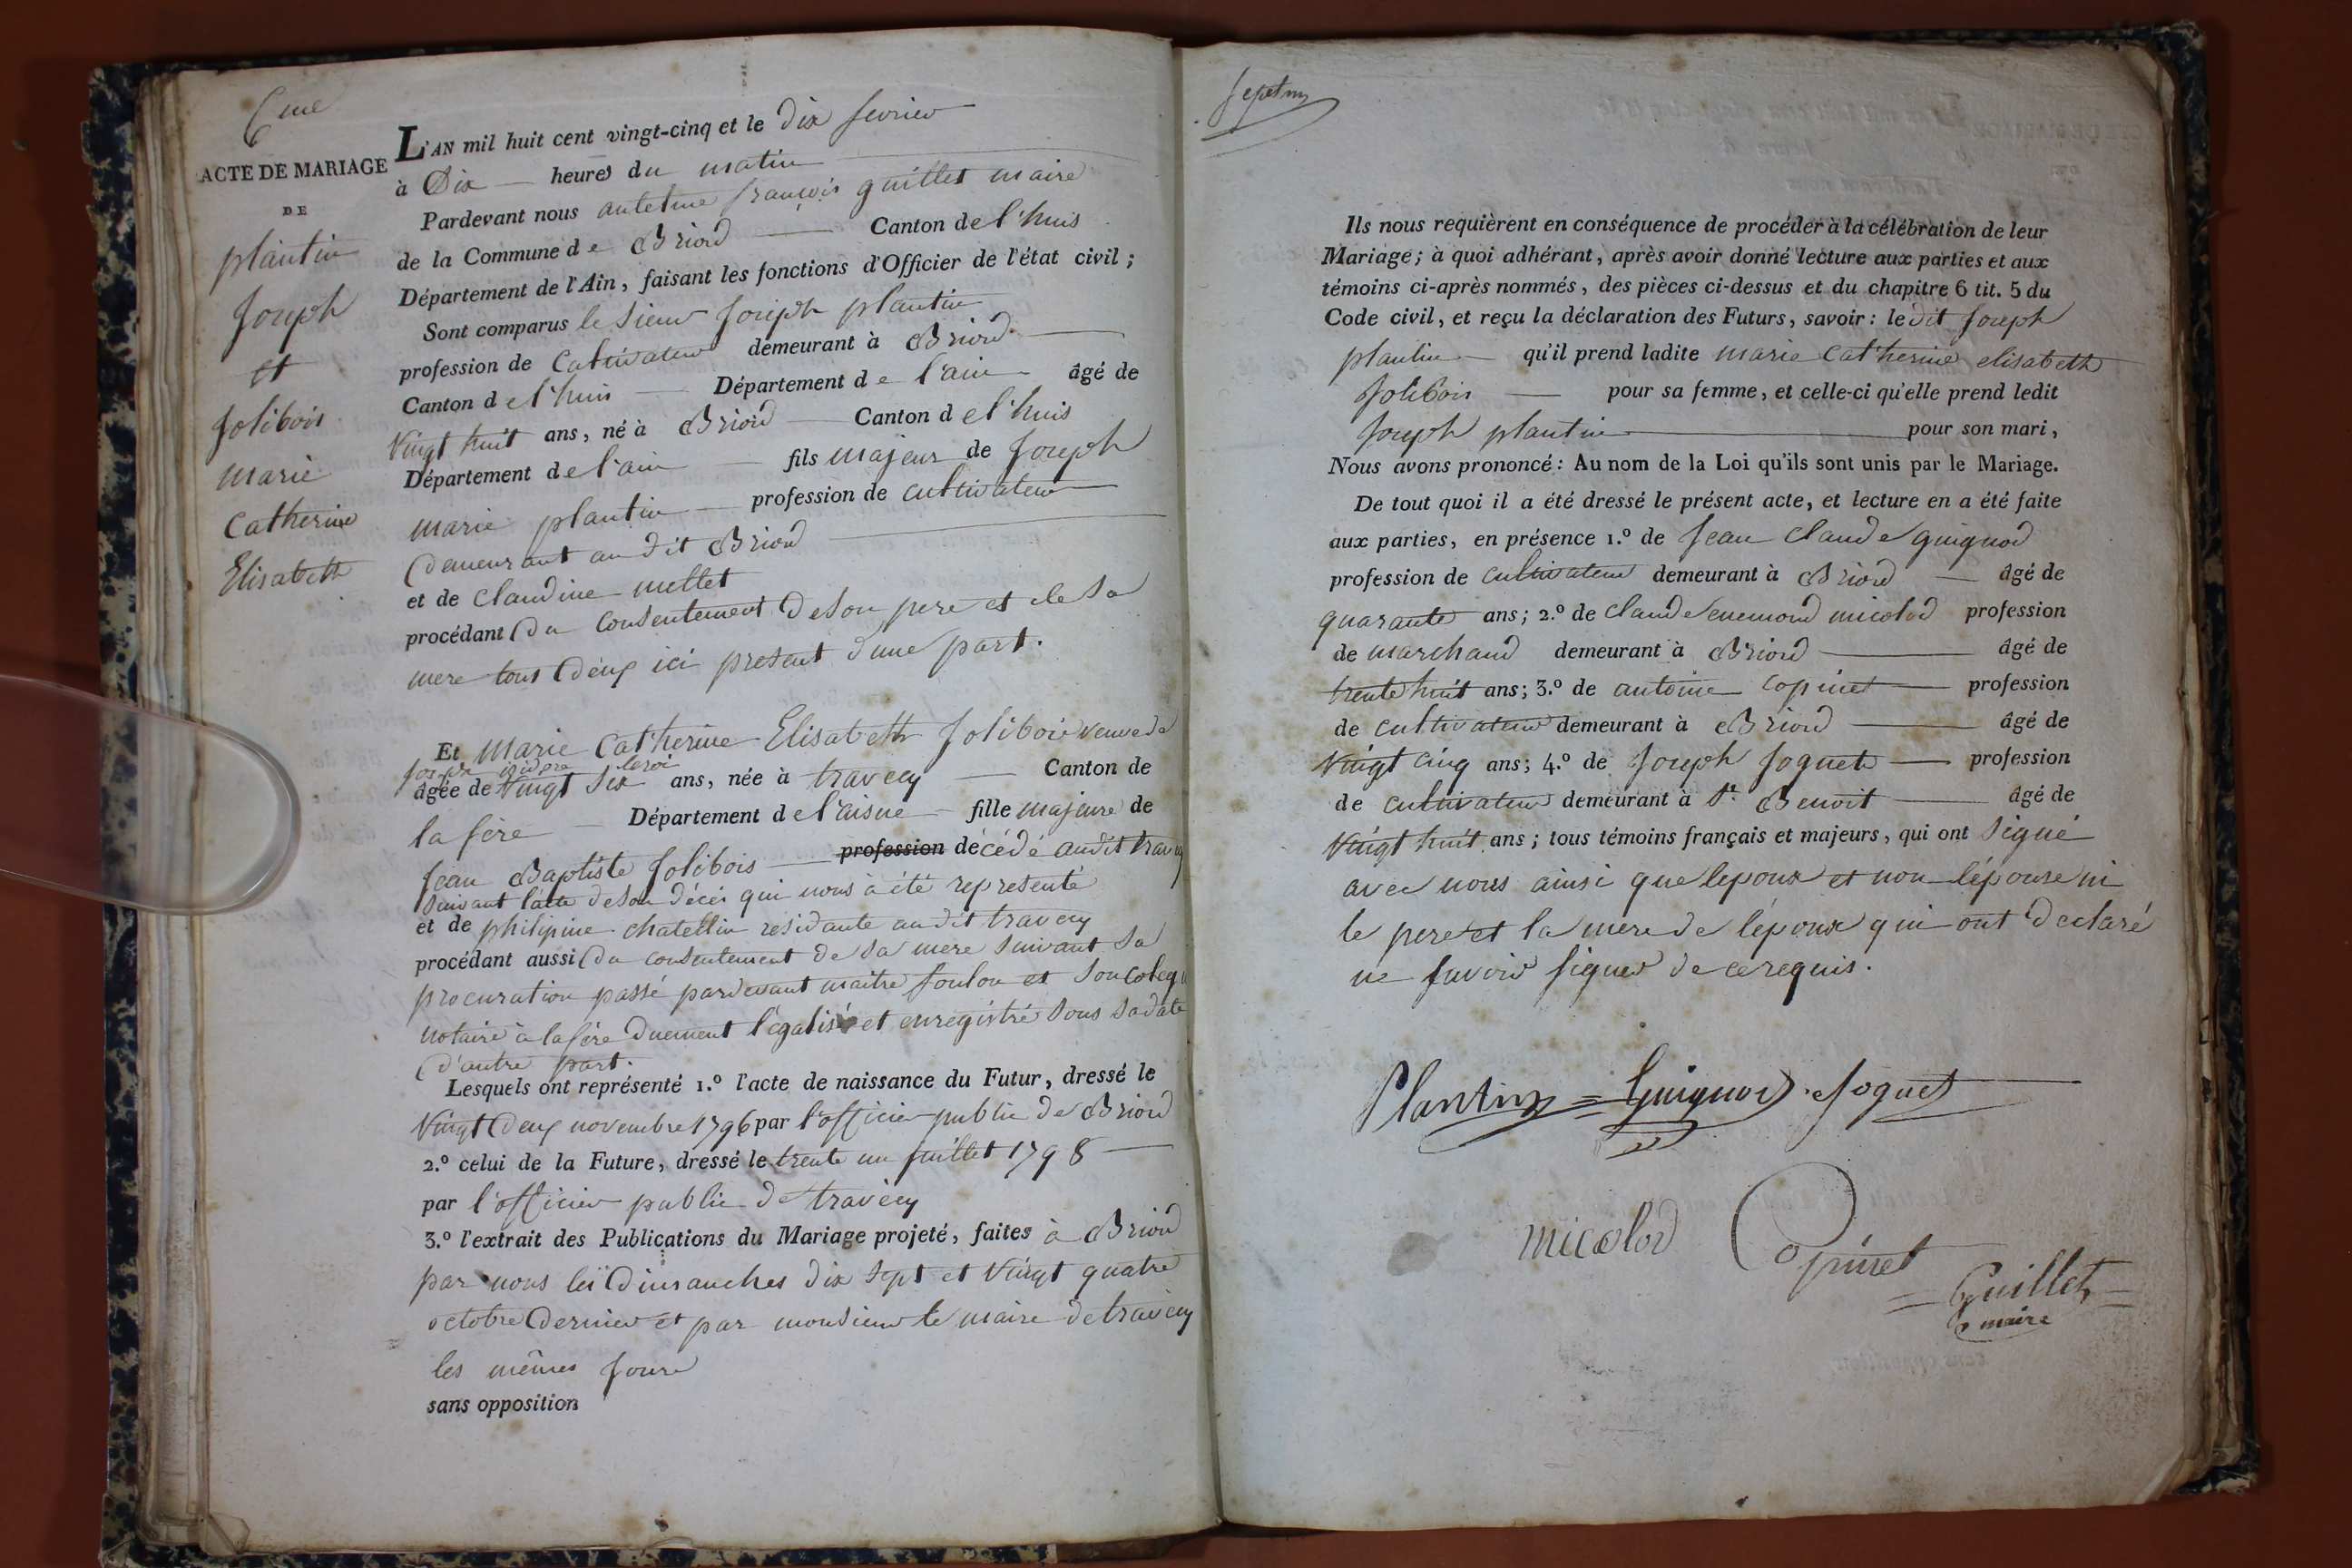 6me
ACTE DE MARIAGE
DE
plantin
Joseph
et
Jolibois
marie
Catherine
Elisabeth
L'AN mil huit cent vingt-cinq et le Dix fevrier
à Dix heures du matin
Pardevant nous antelme françois guillet maire
de la Commune de Briord Canton de l'huis
Département de l'Ain, faisant les fonctions d'Officier de l'état civil;
Sont comparus le Sieur Joseph plantin
profession de Cultivateur demeurant à Briord
Canton de l'huis Département de l'ain âgé de
Vingt huit ans, né à Briord Canton de l'huis
Département de l'ain fils majeur de Joseph
marie plantin profession de cultivateur
Demeurant au dit Briord
et de Claudine mellet
procédant Du Consentement De Son pere et de Sa
mere tous Deux ici present d'une part.
Et Marie Catherine Elisabeth Jolibois veuve de
Joseph isidore leroi
âgée de Vingt Six ans, née à travecy Canton de
la fère Département de l'aisne fille majeure de
Jean Baptiste Jolibois profession décédé audit travecy
Suivant l'acte de Son décès qui nous à été representé
et de philipine chatellin residante au dit travecy
procédant aussi Du consentement de Sa mere Suivant Sa
procuration passé pardevant maitre foulon et Son Colegue
notaire à la fère Duement légalisé et enregistré Sous Sa date
D'autre part.
Lesquels ont représenté 1.º l'acte de naissance du Futur, dressé le
Vingt Deux novembre 1796 par l'officier public De Briord
2.º celui de la Future, dressé le trente un Juillet 1798
par l'officier public de travecy
3.º l'extrait des Publications du Mariage projeté, faites à Briord
par nous les Dimanches dix Sept et Vingt quatre
octobre Dernier et par monsieur le maire de travecy
les mêmes Jours
sans opposition
Ils nous requièrent en conséquence de procéder à la célébration de leur
Mariage; à quoi adhérant, après avoir donné lecture aux parties et aux
témoins ci-après nommés, des pièces ci-dessus et du chapitre 6 tit. 5 du
Code civil, et reçu la déclaration des Futurs, savoir: le dit Joseph
plantin qu'il prend ladite marie Catherine elisabeth
Jolibois pour sa femme, et celle-ci qu'elle prend ledit
Joseph plantin pour son mari,
Nous avons prononcé: Au nom de la Loi qu'ils sont unis par le Mariage.
De tout quoi il a été dressé le présent acte, et lecture en a été faite
aux parties, en présence 1.º de Jean Claude Guignod
profession de cultivateur demeurant à Briord âgé de
quarante ans; 2.º de Claude enemond micolod profession
de marchand demeurant à Briord âgé de
trente huit ans; 3.º de antoine Copinet profession
de cultivateur demeurant à Briord âgé de
Vingt Cinq ans; 4.º de Joseph Joguet profession
de cultivateur demeurant à St. Benoit âgé de
Vingt huit ans; tous témoins français et majeurs, qui ont Signé
avec nous ainsi que lepoux et non lépouse ni
le pere et la mere de lépoux qui ont declaré
ne Savoir Signer de ce requis.
Plantin Guignod Joguet
micolod Copinet
Guillet
maire